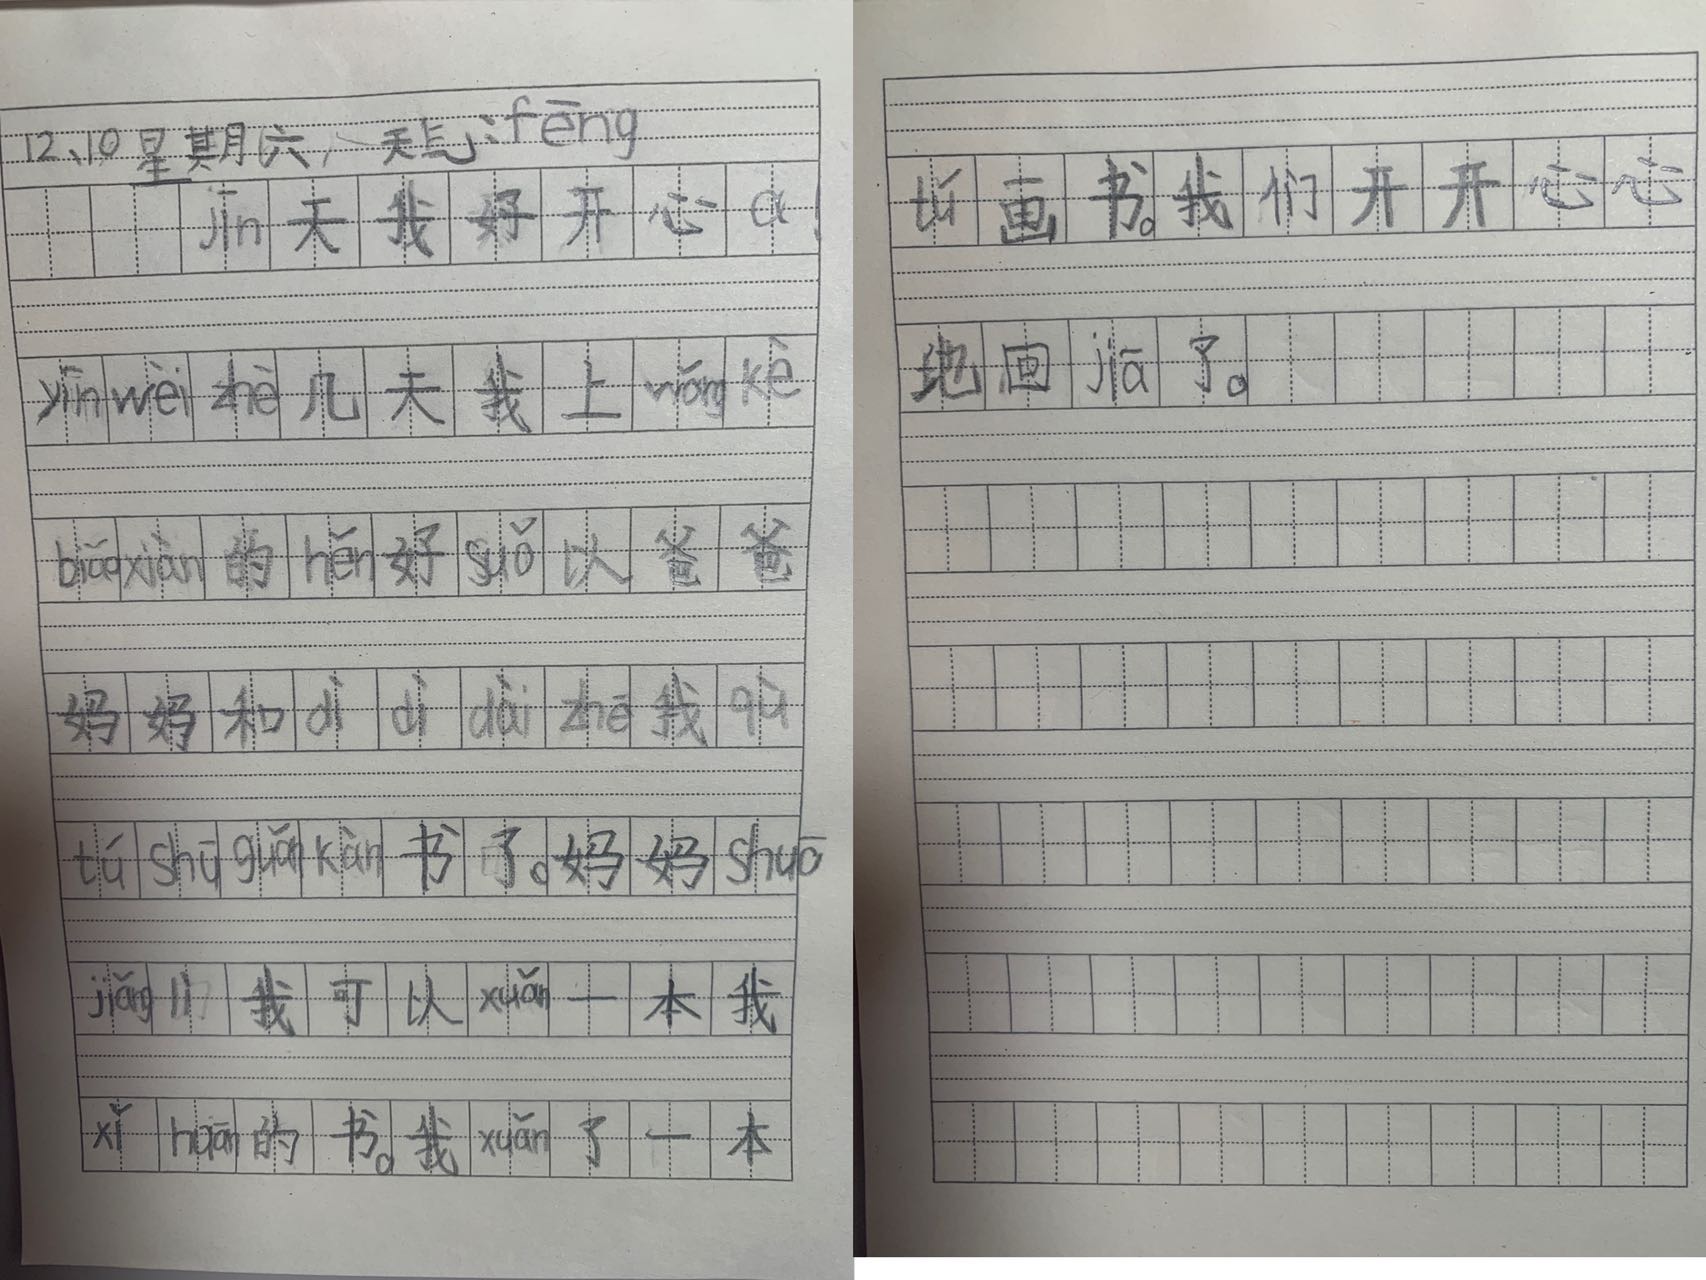 12、10 星期六, 天气:fēng
jīn天我好开心a!
yīnwèizhè几天我上wǎngkè
biǎoxiàn的hěn好suǒ以爸爸
妈妈和dìdìdàizhe我qù
túshūguǎnkàn书了。妈妈shuō
jiǎnglì我可以xuǎn一本我
xǐhuān的书。我xuǎn了一本
tú画书。我们开开心心
地回jiā了。